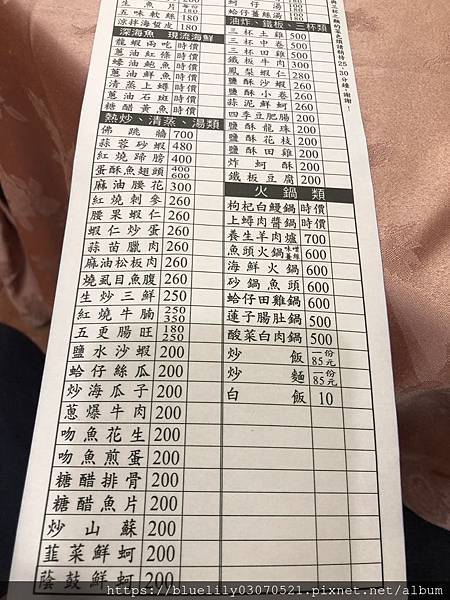 生魚片 每份 180
五味軟絲 180
涼拌海蜇皮 180
深海魚 現流海鮮
龍蝦兩吃 時價
蔥油紅條 時價
蠔油鮑魚 時價
蔥油鮮魚 時價
清蒸上蟳 時價
蔥油石斑 時價
糖醋黃魚 時價
熱炒、清蒸、湯類
佛跳牆 700
蒜蓉砂蝦 480
紅燒蹄膀 400
蛋酥魚翅頭 400 600
麻油腰花 300
紅燒刺參 260
腰果蝦仁 260
蝦仁炒蛋 260
蒜苗臘肉 260
麻油松板肉 260
燒虱目魚腹 260
生炒三鮮 250
紅燒牛腩 250
五更腸旺 180 250
鹽水沙蝦 200
蛤仔絲瓜 200
炒海瓜子 200
蔥爆牛肉 200
吻魚花生 200
吻魚煎蛋 200
糖醋排骨 200
糖醋魚片 200
炒山蘇 200
韮菜鮮蚵 200
蔭鼓鮮蚵 200
蚵仔湯 180
蛤仔薑絲湯 180
油炸、鐵板、三杯類
三杯土雞 500
三杯中卷 500
三杯田雞 500
鐵板牛肉 300
鳳梨蝦仁 280
鹽酥沙蝦 260
鹽酥小卷 260
蒜泥鮮蚵 260
四季豆肥腸 200
鹽酥龍珠 200
鹽酥花枝 200
鹽酥田雞 200
炸蚵酥 200
鐵板豆腐 200
火鍋類
枸杞白鰻鍋 時價
上蟳肉醬鍋 時價
養生羊肉爐 700
魚頭火鍋 味噌 薑絲 600
海鮮火鍋 600
砂鍋魚頭 600
蛤仔田雞鍋 600
蓮子腸肚鍋 500
酸菜白肉鍋 500
炒飯 一份 85元
炒麵 一份 85元
白飯 10
25~30分鐘,謝謝!
https://bluelily03070521.pixnet.net/album